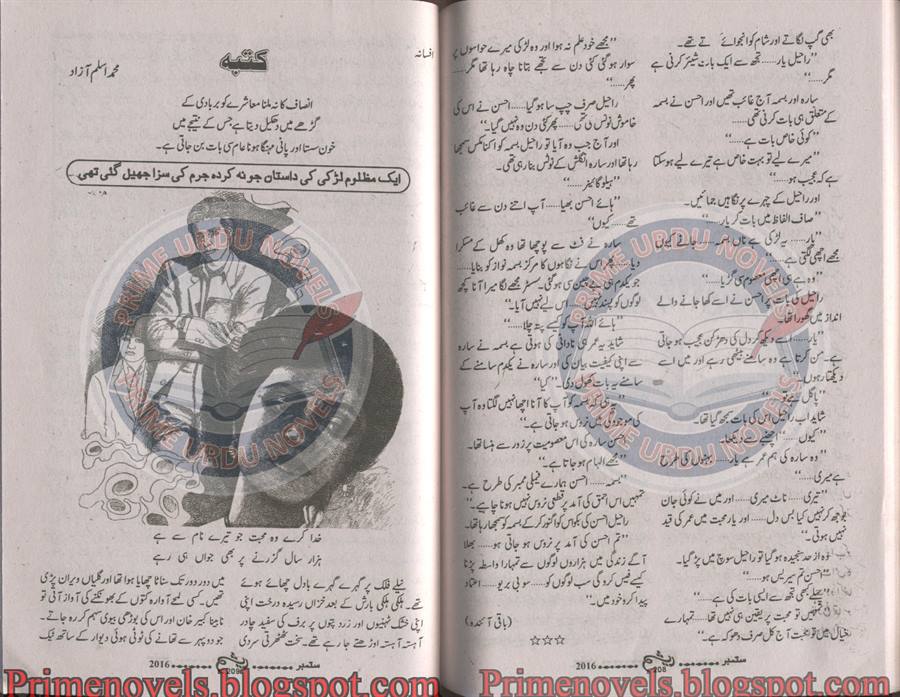 بھی گپ لگاتے اور شام کو انجوائے کرتے تھے۔
"راحیل یار...... تجھ سے ایک بات شیئر کرنی ہے
مگر......"
سارہ اور بسمہ آج غائب تھیں اور احسن نے بسمہ
کے متعلق ہی بات کرنی تھی۔
"کوئی خاص بات ہے......"
"میرے لیے تو بہت خاص ہے تیرے لیے ہو سکتا
ہے کہ عجیب ہو......"
اور راحیل کے چہرے پر نگاہیں جمائیں۔
"صاف الفاظ میں بات کر یار......"
"یار...... یہ لڑکی ہے ناں بسمہ...... جانے کیوں
مجھے اچھی لگتی ہے......
"وہ ہے ہی اچھی معصوم سی گڑیا......"
راحیل کی بات پر احسن نے اسے کھا جانے والے
انداز میں گھورا تھا۔
"یار...... اسے دیکھ کر دل کی دھڑکن عجیب ہو جاتی
ہے۔ من کرتا ہے وہ سامنے بیٹھی رہے اور میں اسے
دیکھتا رہوں۔"
"پاگل ہے تو......"
شاید اب راحیل اس کی بات سمجھ گیا تھا۔
"کیوں......" اچنبھے سے دیکھا۔
"وہ سارہ کی ہم عمر ہے یار...... بہنوں کی طرح
ہے میری......"
"تیری...... ناٹ میری...... اور میں نے کوئی جان
بوجھ کر نہیں کیا بس دل...... اور یار محبت میں عمر کی قید
نہیں ہوتی۔"
وہ از حد سنجیدہ ہو گیا تو راحیل سوچ میں پڑ گیا۔
"احسن تم سیریس ہو......"
"پہلے کبھی تجھ سے ایسی بات کی ہے......"
"نہیں تو محبت پر یقین ہی نہیں تھا...... تمہارے
خیال میں تو محبت آج کل صرف دھوکہ ہے۔"
"مجھے خود علم نہ ہوا اور وہ لڑکی میرے حواسوں پر
سوار ہو گئی کئی دن سے تجھے بتانا چاہ رہا تھا مگر......
پھر......"
راحیل صرف چپ سا ہو گیا...... احسن نے اس کی
خاموشی نوٹس کی تھی...... پھر کئی دن وہ نہیں گیا۔"
اور آج جب وہ آیا تو راحیل بسمہ کو اکنامکس سمجھا
رہا تھا اور سارہ انگلش کے نوٹس بنا رہی تھی۔
"ہیلو گائیز......"
"ہائے احسن بھیا...... آپ اتنے دن سے غائب
تھے...... کیوں"
سارہ نے فٹ سے پوچھا تھا وہ کھل کے مسکرا
دیا...... پھر اس نے نگاہوں کا مرکز بسمہ نواز کو بنایا......
جو یکدم ہی بے چین سی ہو گئی۔ سسٹر مجھے لگا میرا آنا کچھ
لوگوں کو پسند نہیں...... اس لیے نہیں آیا۔"
"ہائے اللہ آپ کو کیسے پتہ چلا......"
شاید یہ عمر ہی نادانی کی ہوتی ہے بسمہ نے سارہ
سے اپنی کیفیت بیان کی اور سارہ نے یکدم سامنے کے
سامنے یہ بات کھول دی۔ "کیا"
"جی بسمہ کو آپ کا آنا اچھا نہیں لگتا وہ آپ
کی موجودگی میں نروس ہو جاتی ہے۔"
احسن سارہ کی اس معصومیت پر زور سے ہنسا تھا۔
"مجھے الہام ہو جاتا ہے۔"
"بسمہ...... احسن ہمارے فیملی ممبر کی طرح ہے۔
تمہیں اس احمق کی آمد پر قطعی نروس نہیں ہونا چاہیے۔"
راحیل احسن کی بکواس کو اگنور کر کے بسمہ کو سمجھا رہا تھا۔
"تم احسن کی آمد پر نروس ہو جاتی ہو...... بھلا
آگے زندگی میں ہزاروں لوگوں سے تمہارا واسطہ پڑنا
کیسے فیس کرو گی سب لوگوں کو...... سو بی بریو...... اعتماد
پیدا کرو خود میں۔"
(باقی آئندہ)
☆☆☆
ستمبر ......... 208 ......... 2016
افسانہ
کتبہ
محمد اسلم آزاد
انصاف کا نہ ملنا معاشرے کو بربادی کے
گڑھے میں دھکیل دیتا ہے جس کے نتیجے میں
خون سستا اور پانی مہنگا ہونا عام سی بات بن جاتی ہے۔
ایک مظلوم لڑکی کی داستان جو نہ کردہ جرم کی سزا جھیل گئی تھی ..
خدا کرے وہ محبت جو تیرے نام سے ہے
ہزار سال گزرنے پر بھی جواں ہی رہے
نیلے فلک پر گہرے گہرے بادل چھائے ہوئے
تھے۔ ہلکی ہلکی بارش کے بعد خزاں رسیدہ درخت اپنی
اپنی خشک ٹہنیوں اور زرد پتوں پر برف کی سفید چادر
آہستہ آہستہ اوڑھتے جا رہے تھے۔ سخت ٹھٹھرتی سردی
میں دور دور تک سناٹا چھایا ہوا تھا اور گلیاں ویران پڑی
تھیں۔ کسی لمحے آوارہ کتوں کے بھونکنے کی آواز آتی تو
نابینا کبیر خان اور اس کی بوڑھی بیوی سہم کر رہ جاتے۔
جو دوپہر سے تھانے کی ٹوٹی ہوئی دیوار کے ساتھ ٹیک
ستمبر ......... 209 ......... 2016
PRIME URDU NOVELS
PRIME URDU NOVELS
PRIME URDU NOVELS
PRIME URDU NOVELS
Primenovels.blogspot.com
Primenovels.blogspot.com